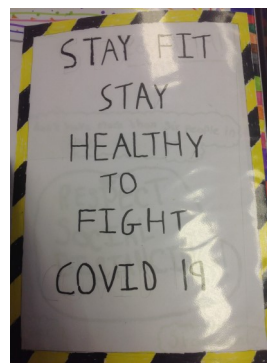 STAY FIT
STAY
HEALTHY
TO
FIGHT
COVID 19